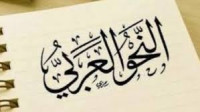 النَّحْوُ العَرَبِيُّ